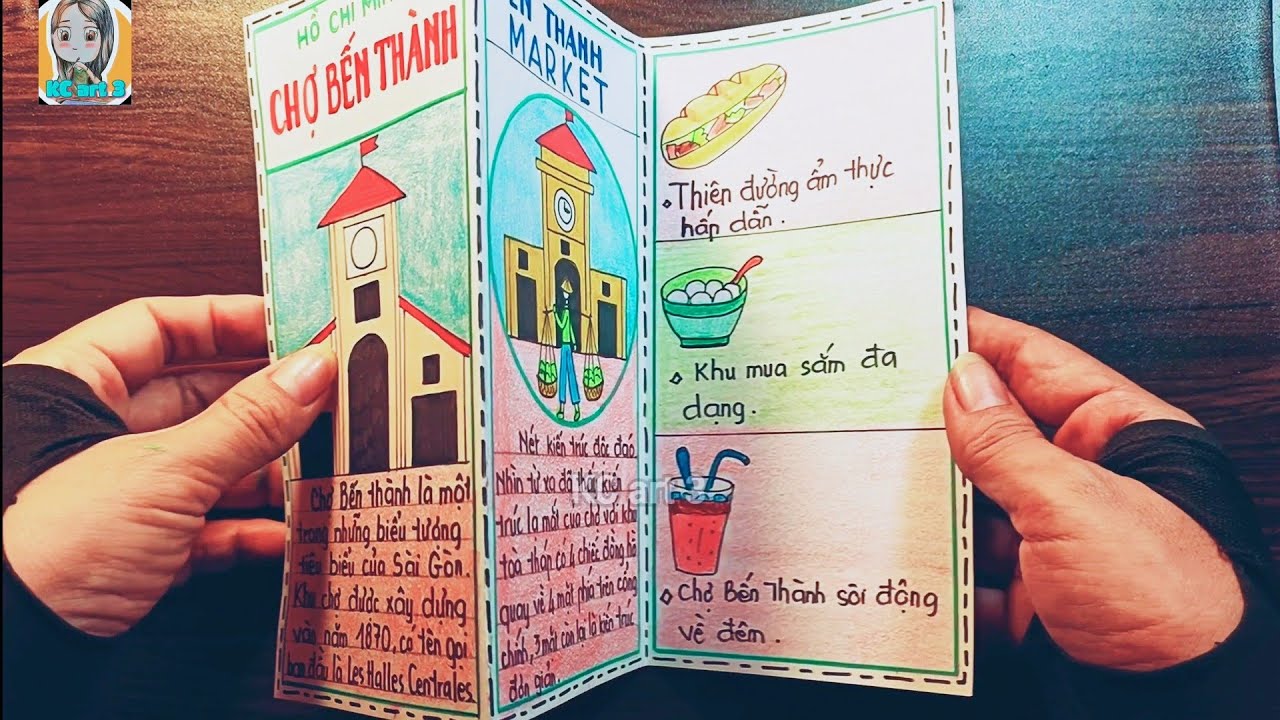 KC art 3
HỒ CHI MIN
CHỢ BẾN THÀNH
Chợ Bến thành là một
trong những biểu tượng
tiêu biểu của Sài Gòn.
Khu chợ được xây dựng
vào năm 1870, có tên gọi
ban đầu là Les Halles Centrales
EN THANH
MARKET
Nét kiến trúc độc đáo
Nhìn từ xa đã thấy kiến
trúc lạ mắt của chợ với khu
toà tháp có 4 chiếc đồng hồ
quay về 4 mặt phía trên cổng
chính, 3 mặt còn lại là kiến trúc
đơn giản.
Thiên đường ẩm thực
hấp dẫn.
Khu mua sắm đa
dạng.
Chợ Bến Thành sôi động
về đêm.
KC art 3